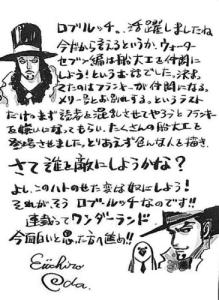 ロブルッチ…、活躍しましたね
今だから言えるというか、ウォーター
セブン編は船大工を仲間に
しよう！という話でした。決ま
ってたのはフランキーが仲間になる。
メリー号とお別れする。というラスト
だけ。まず読者を混乱させてやろうとフランキー
を嫌いになってもらい、たくさんの船大工を
登場させました。とりあえず色んな人を描き、
さて誰を敵にしようかな？
よし、このハトのせた変な奴にしよう！
それがそう ロブ・ルッチなのです!!
連載ってワンダーランド
今面白いと思った方へ進め!!
Eiichiro
Oda.